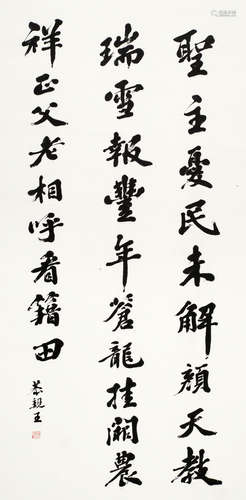 聖主憂民未解顏天教
瑞雪報豐年蒼龍挂闕農
祥正父老相呼看籍田
恭親王